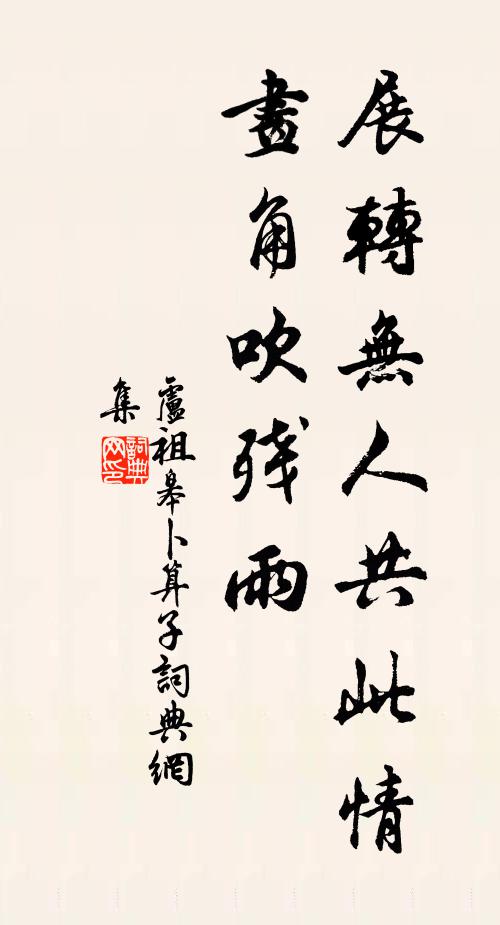 展轉無人共此情
畫角吹残雨
盧祖皋卜算子詞典網
集
詞典
网印